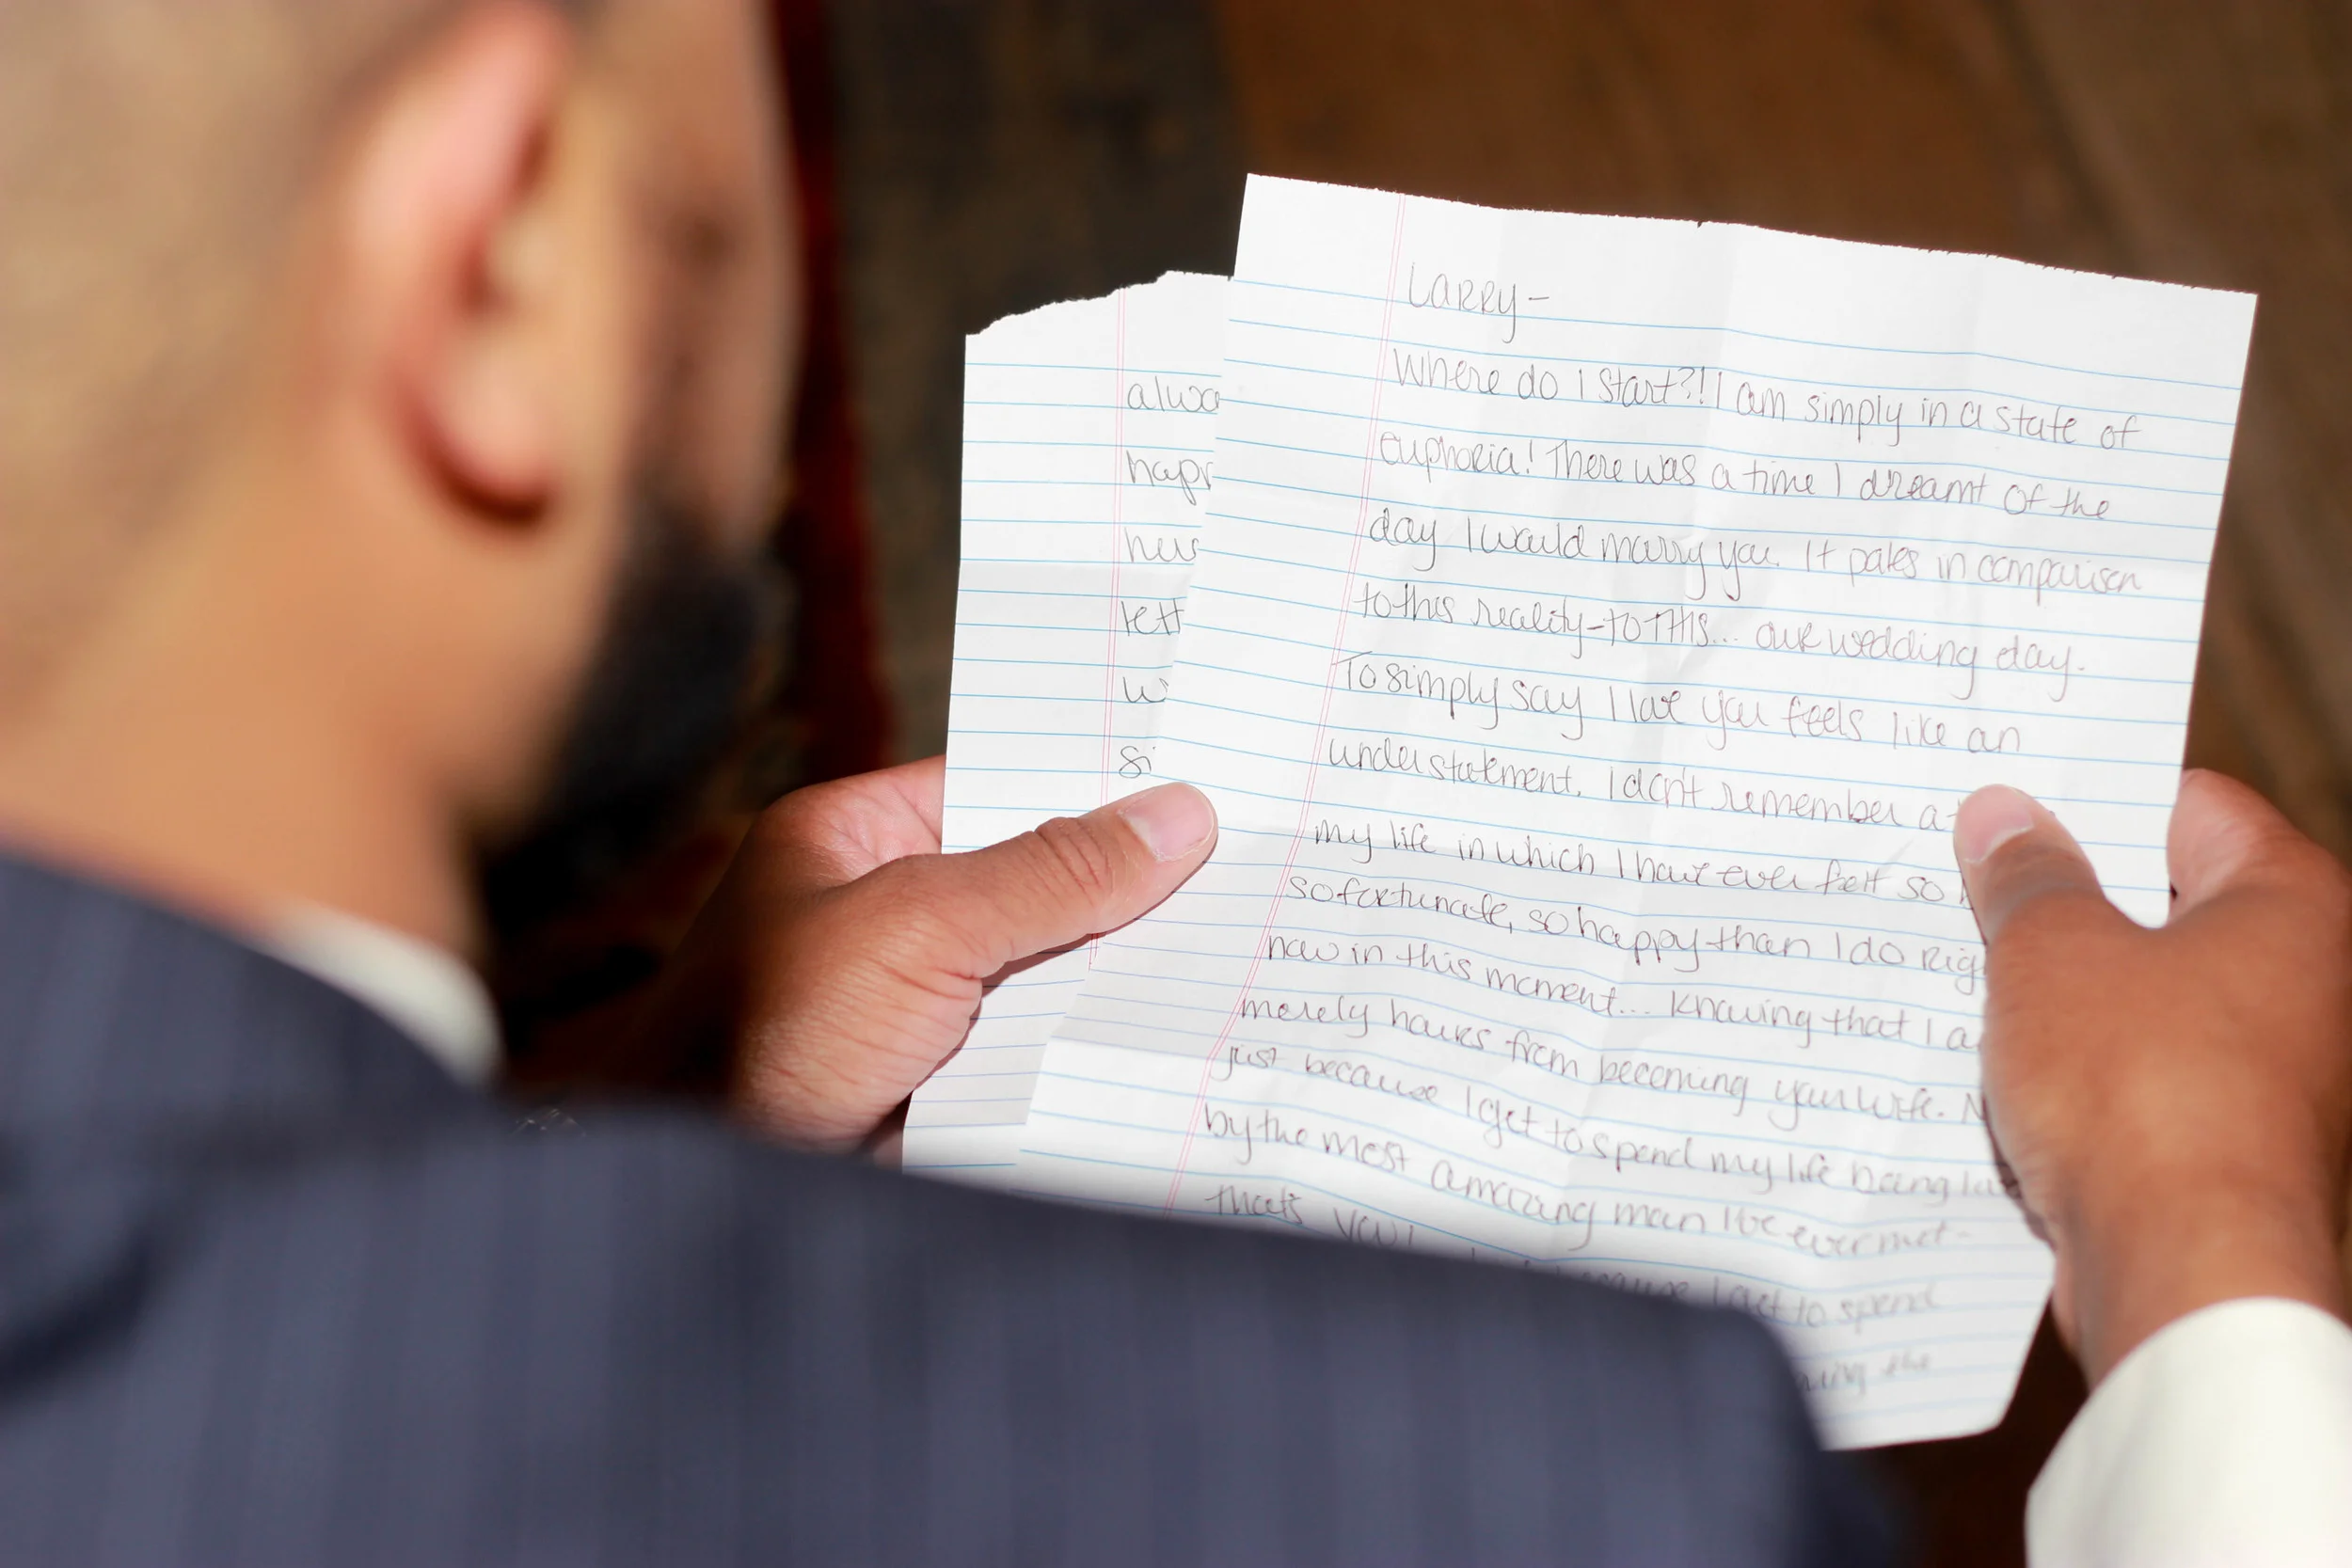 alwa
hap
hus
lett
w
si
Larry-
Where do I start?! I am simply in a state of
euphoria! There was a time I dreamt of the
day I would marry you. It pales in comparison
to this reality-to THIS... our wedding day.
To simply say I love you feels like an
understatement. I don't remember a
my life in which I have ever felt so
so fortunate, so happy than I do Righ
now in this moment... knowing that I a
merely hours from becoming your wife. N
just because I get to spend my life being lov
by the most amazing man I've ever met-
that's you!
because I get to spend
the